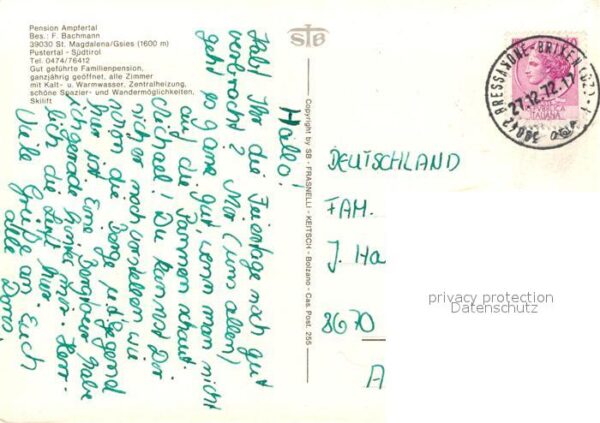 Pension Ampfertal
Bes.: F. Bachmann
39030 St. Magdalena/Gsies (1600 m)
Pustertal - Südtirol
Tel. 0474/76412
Gut geführte Familienpension,
ganzjährig geöffnet, alle Zimmer
mit Kalt- u. Warmwasser, Zentralheizung,
schöne Spazier- und Wandermöglichkeiten,
Skilift
STB
Hallo!
Habt Ihr die Feiertage noch gut
verbracht? Mir (uns allen)
geht es ganz gut, wenn man nicht
auf die Pannen schaut.
Michael! Du kannst Dir
nicht mehr vorstellen wie
schön die Berge und Gegend
hier ist. Eine Bergtour habe
ich gerade hinter mir. Herr-
lich die Luft hier.
Viele Grüße an Euch
alle
Copyright by SB - FRASNELLI - KEITSCH - Bolzano - Cas. Post. 255
39042 BRESSANONE-BRIXEN (BZ)
27.12.72.17
REPUBBLICA
ITALIANA
DEUTSCHLAND
FAM.
J. Ha
8670
A
privacy protection
Datenschutz